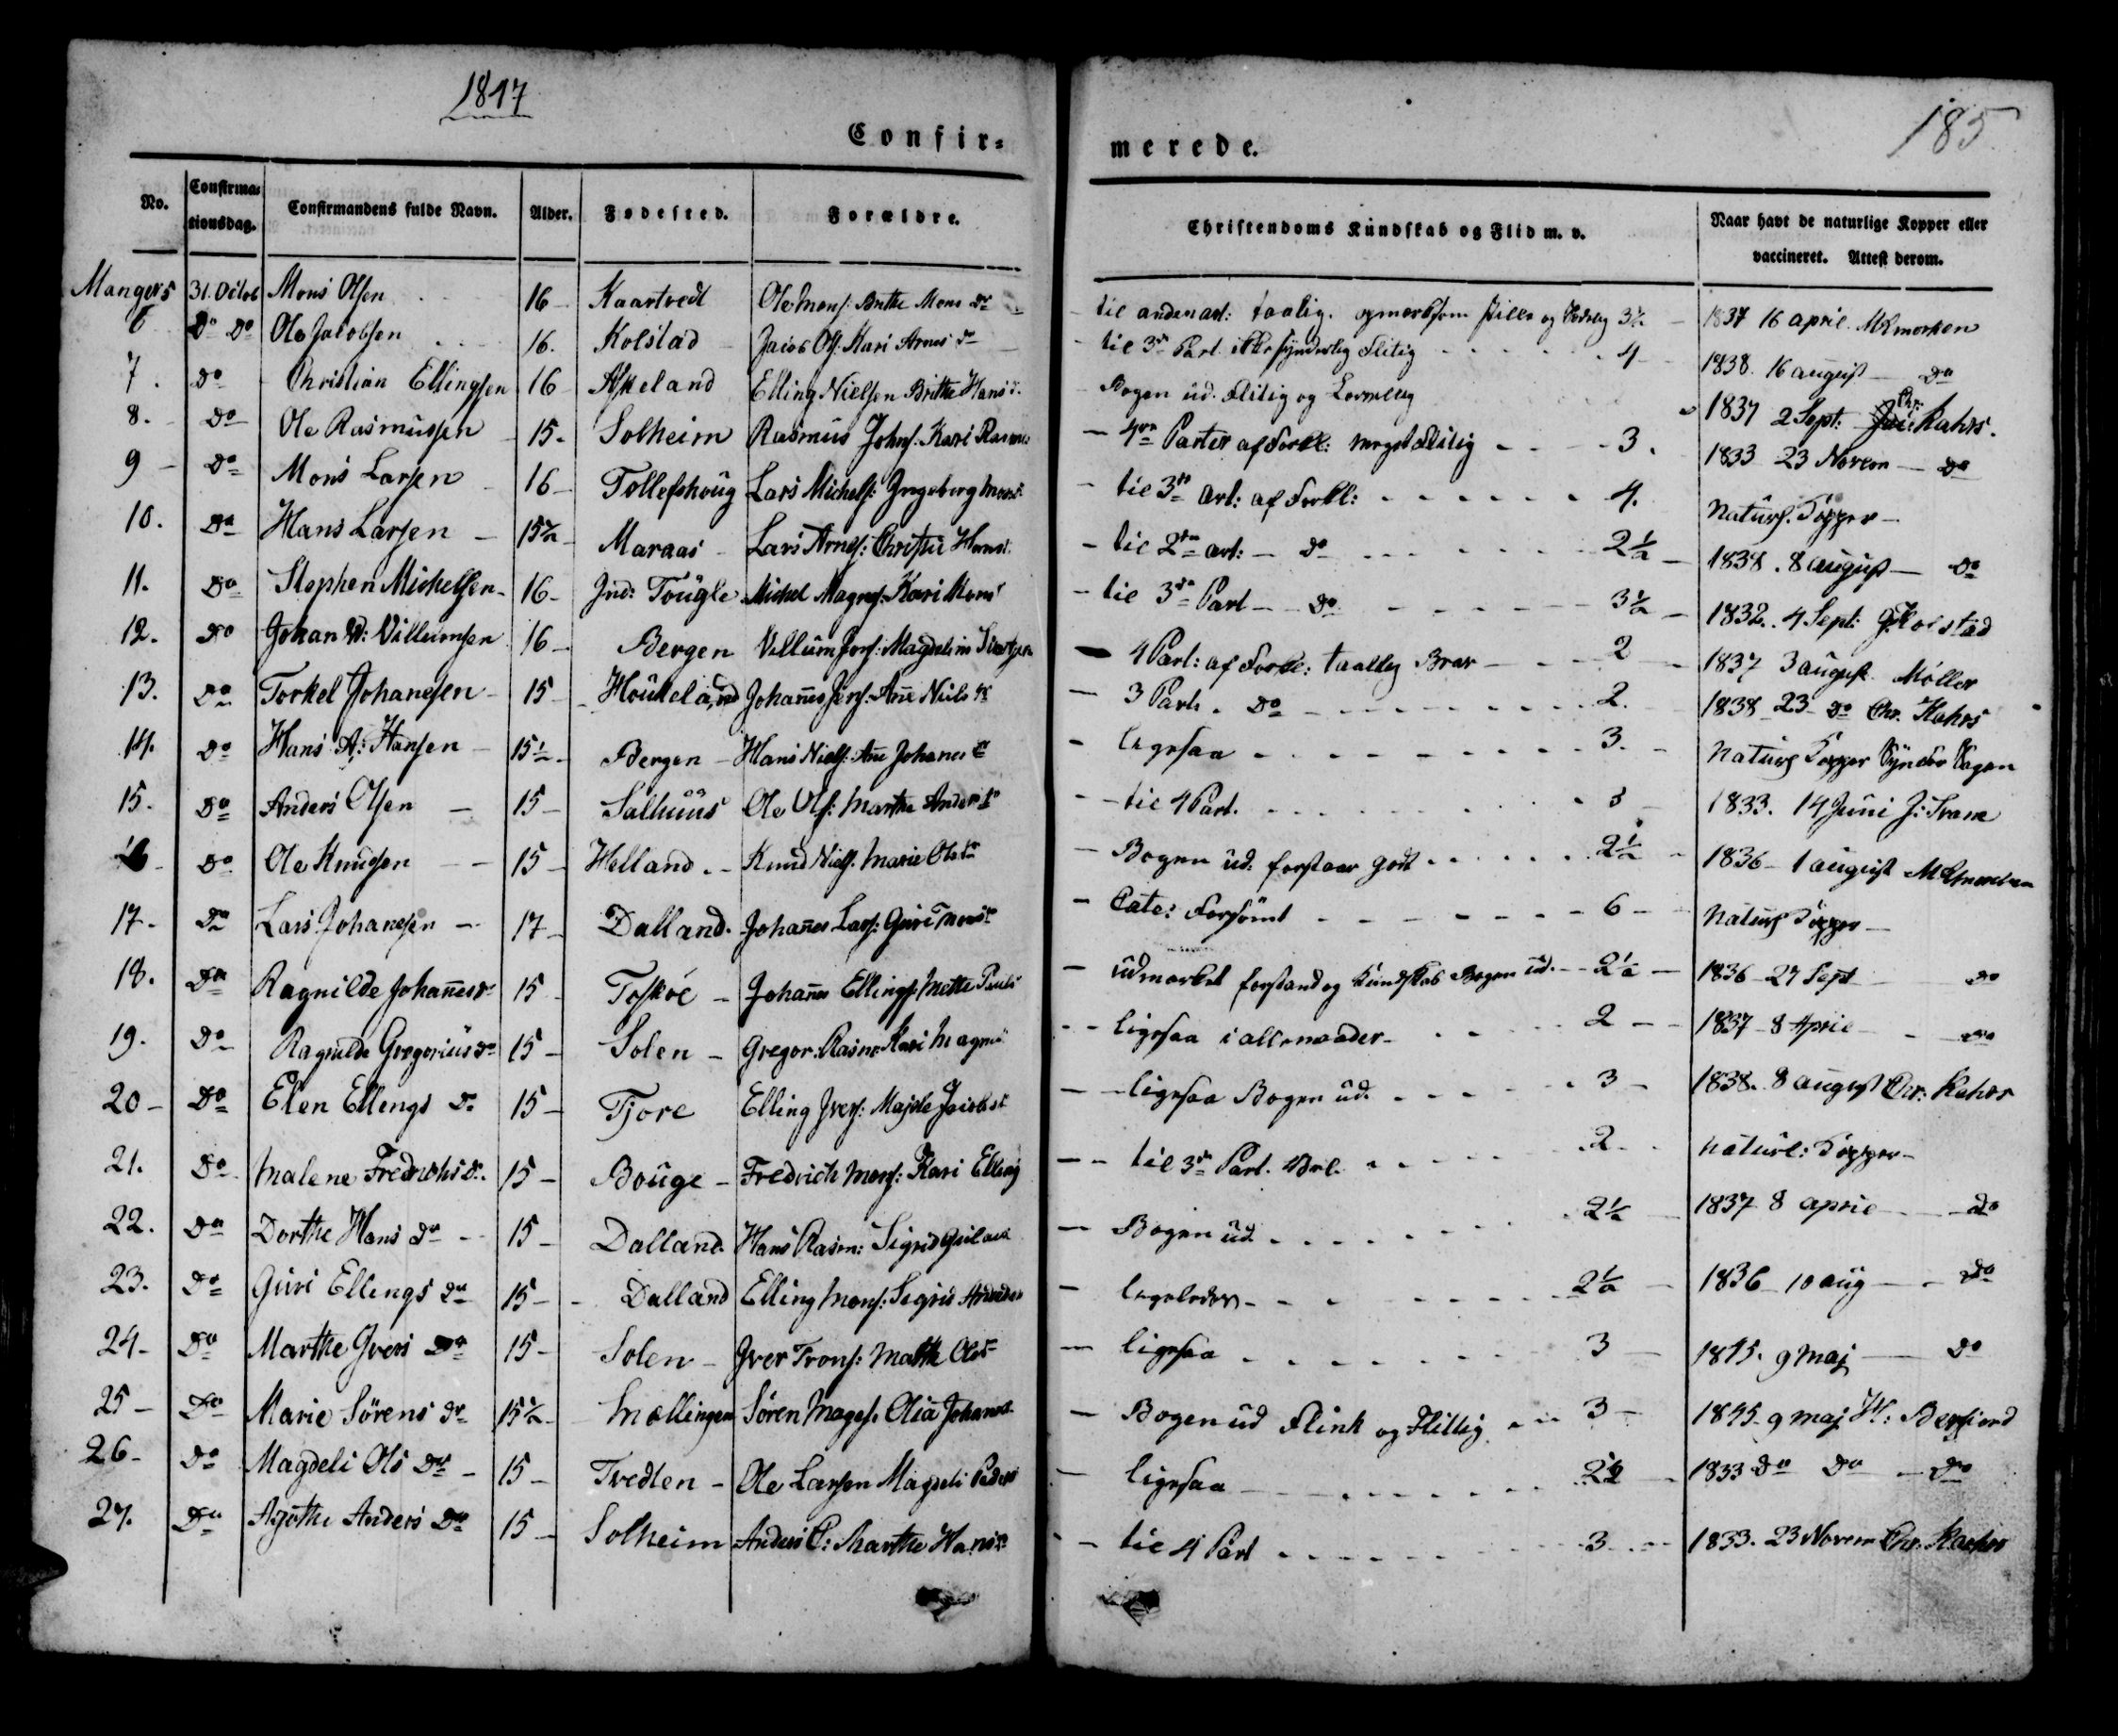 1847
185
Confir=
merede.
No. Confirma=tionsdag. Confirmandens fulde Navn. Alder. Fødested. Forældre. Christendoms Kundskab og Flid m. v. Naar havt de naturlige Kopper eller vaccineret. Attest derom.
Mangers 5 31. Octob Mons Olsen 16 Kaartvedt Ole Mons: Brithe Mons Dr til anden art: taalig. opmerksom stille og 3½ 1837 16 april.
6 Do Do Ole Jacobsen 16. Kolstad Jacob Ols: Kari Arnes dr til 3de Part. ikke synderlig Flitig 4 1838. 16 august Do
7. Do Christian Ellingsen 16 Askeland Elling Nielsen Brithe Hans d. Bogen ud. Flitig og 1837 2 Sept: Chr: Kahrs.
8. Do Ole Rasmussen 15. Solheim Rasmus Johns: Kari Rasmus 4re Parter af Forkl: meget Flitig 3. 1833 23 Novem Do
9 Do Mons Larsen 16 Tollefshoug Lars Michels: Ingeborg Mons til 3de art: af Forkl: 4. Naturl. Kopper
10. Do Hans Larsen 15½ Maraas Lars Arnes: Christie Hans til 2den art: Do 2½ 1838. 8 august Do
11. Do Stephen Michelsen 16 Ind: Tougle Michel Magnes: Kari Mons til 3de Part Do 3½ 1832. 4 Sept: Kolstad
12. Do Johan W: Villumsen 16 Bergen Villum Jons: Magdelina 4 Part: af Forkl: taallig Brav 2 1837 3 august Möller
13. Do Torkel Johanesen 15 Houkeland Johañes Jens: Añe Niels dr 3 Part. Do 2. 1838 23 Do Chr. Kahrs
14. Do Hans A: Hansen 15½ Bergen Hans Niels: Añe Johanes dr ligesaa 3. Naturl Kopper
15. Do Anders Olsen 15 Salhuus Ole Ols: Marthe Anders dr til 4 Part. 3 1833. 14 Juni
16 Do Ole Knudsen 15 Helland Knud Niels. Marie Ols dr Bogen ud. forstaar godt 2½ 1836 1 august
17. Do Lars Johanesen 17 Dalland. Johañes Lars: Guri Mons dr Cate: Forsömt 6 Naturl Kopper
18. Do Ragnilde Johañes dr 15 Toskøe Johañes Ellings: Mette Pauls udmærket forstand og Kundskab Bogen ud. 2½ 1836 27 Sept Do
19. Do Ragnilde Gregorius dr 15 Solen Gregor. Rasm: Kari Magne ligesaa i alle maader 2 1837 8 April Do
20 Do Elen Ellings dr 15 Tjore Elling Ivers: Majde Jacobs dr ligesaa Bogen ud. 3 1838. 8 august Chr: Kahrs
21. Do Malene Fredrichs dr. 15 Bouge Fredrich Mons: Kari Elling til 3de Part. 2 Naturl: Kopper
22. Do Dorthe Hans dr 15 Dalland Hans Rasm: Sigrid Bogen ud. 2½ 1837 8 april do
23. Do Guri Ellings dr 15 Dalland Elling Mons: Sigrid ligeledes 2½ 1836 10 aug Do
24 Do Marthe Ivers Dr 15 Solen Iver Trons: Malthe Ols dr ligesaa 3 1845. 9 Maj Do
25 Do Marie Sörens dr 15½ Mællingen Sören Mages. Olia Johanes Bogen ud Flink og Flittig 3 1845 9 Maj
26 Do Magdeli Ols Dr 15 Tvedten Ole Larsen Magdeli Peders ligesaa 2½ 1833 Do Do Do
27. Do Agathe Anders Dr 15 Solheim Anders C: Marthe Hans dr til 4 Part 3 1833. 23 Novem Chr. Kahrs